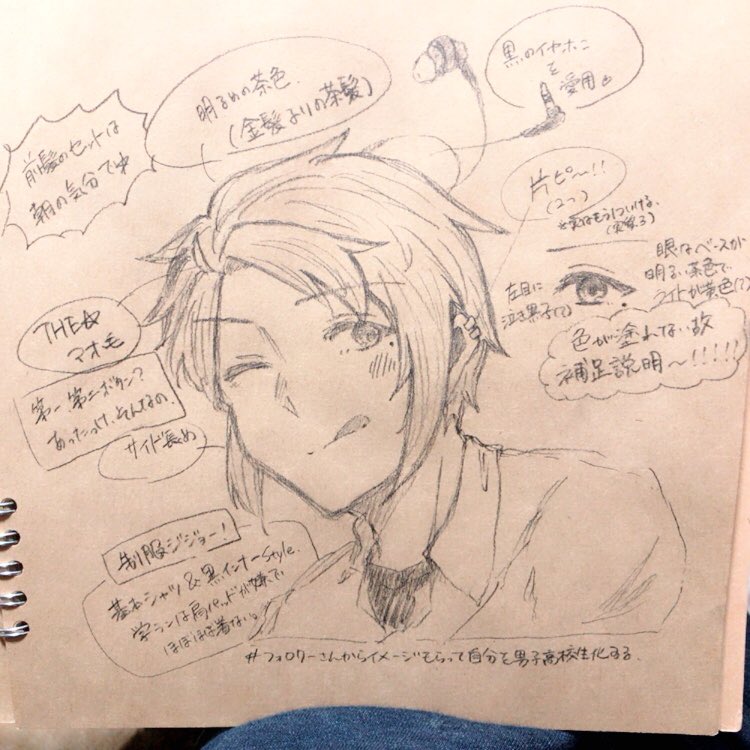 明るめの茶色.
(金髪よりの茶髪)
黒のイヤホン
を
愛用
前髪のセットは
朝の気分で
片ピ〜!!
(2つ)
眼はベースが
明るい茶色で
ライトが黄色(?)
左目に
泣き黒子(?)
色が塗れない故
補足説明〜!!!!!
THE☆
マオモ
第一、第二ボタン?
あったっけ、そんなの.
サイド長め
制服ジジョー!
基本シャツ&黒インナーstyle.
学ランは肩パッドが嫌で
ほぼほぼ着ない。
#フォロワーさんからイメージもらって自分を男子高校生化する.